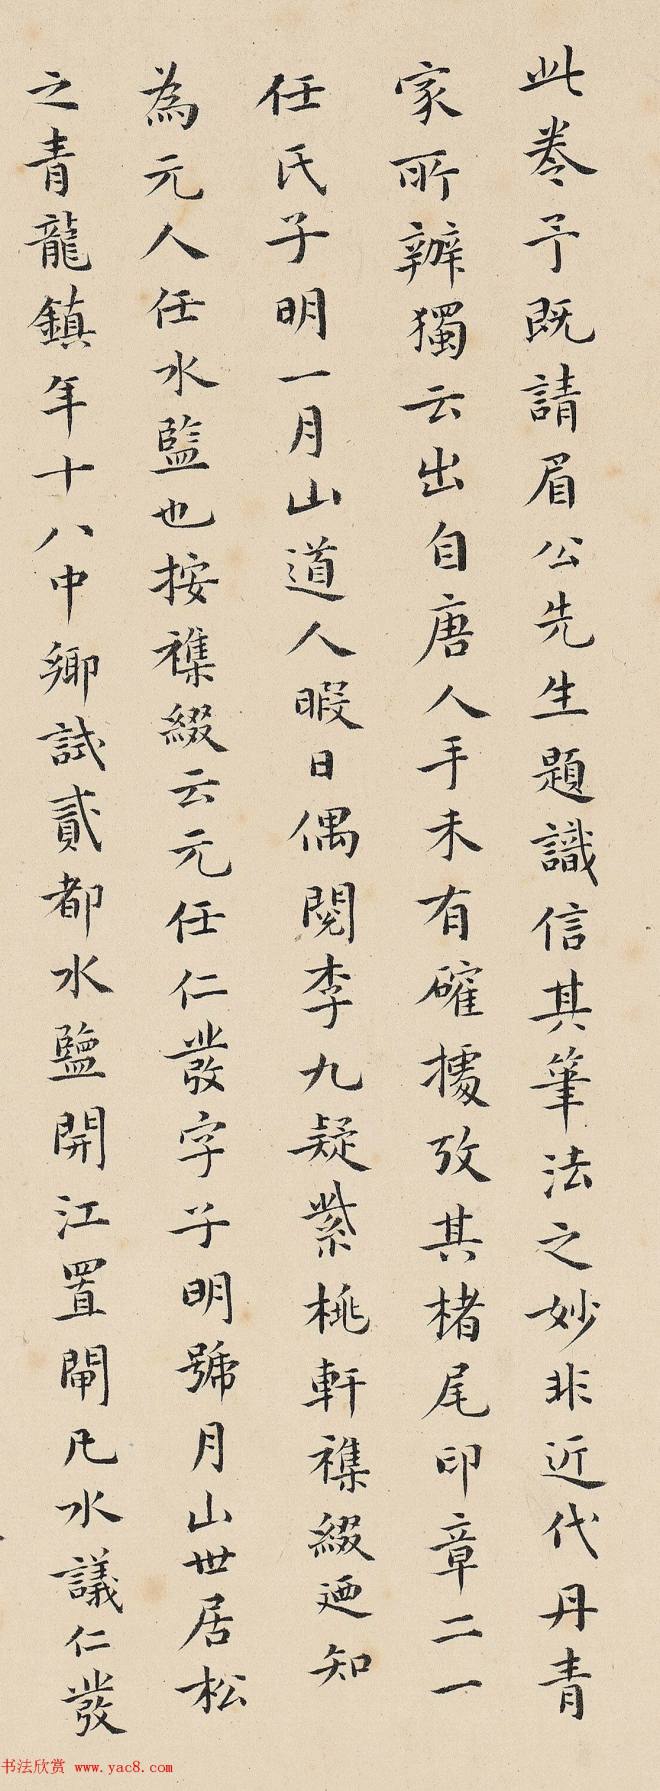 此卷予既請眉公先生題識信其筆法之妙非近代丹青
家所辦獨云出自唐人手未有確據攷其楮尾印章二一
任氏子明一月山道人暇日偶閱李九疑紫桃軒襍綴迺知
為元人任水監也按襍綴云元任仁發字子明號月山世居松
之青龍鎮年十八中鄉試貳都水鹽開江置閘凡水議仁發
书法欣赏 www.yac8.com